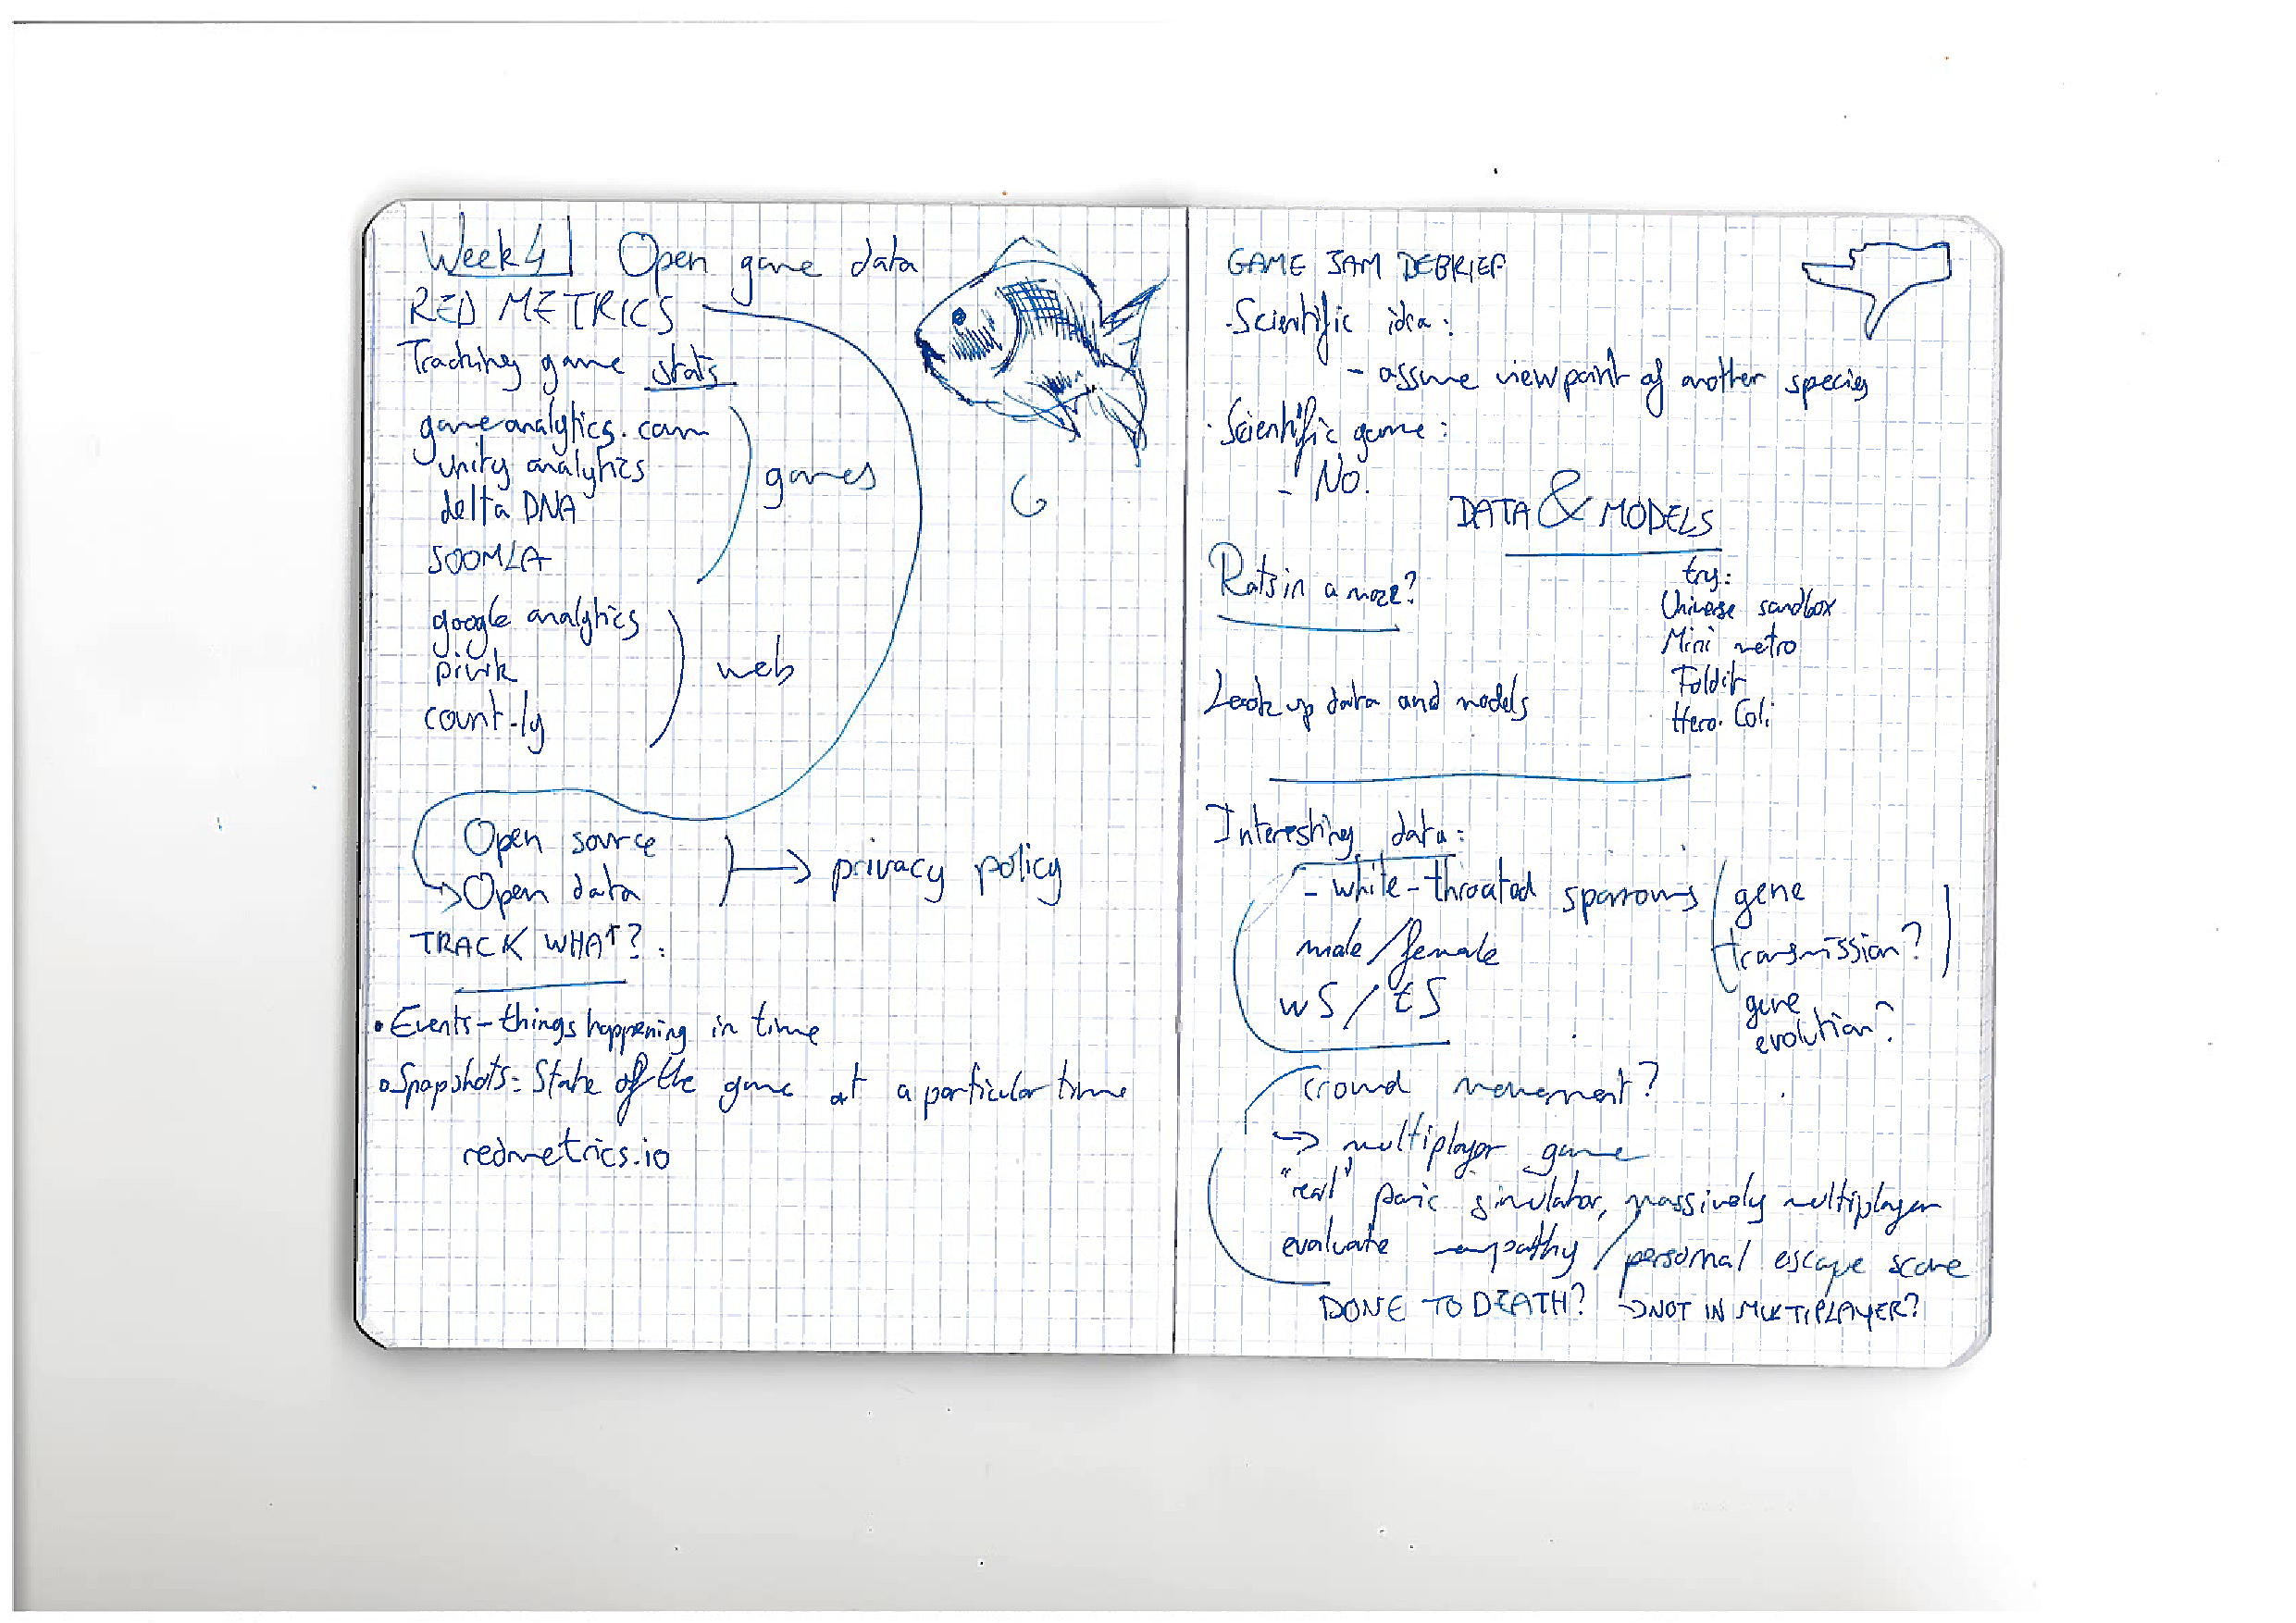 Week 4 Open game data
RED METRICS
Tracking game stats
gameanalytics.com
unity analytics
delta DNA
SOOMLA
games
google analytics
piwik
count.ly
web
Open source
Open data
privacy policy
TRACK WHAT? :
• Events - things happening in time
• Snapshots = State of the game at a particular time
redmetrics.io
GAME JAM DEBRIEF
- Scientific idea :
- assume viewpoint of another species
· Scientific game :
- No.
DATA & MODELS
Rats in a maze?
try:
Universe sandbox
Mini metro
Foldit
Hero. Coli
Look up data and models
Interesting data :
- white-throated sparrows (gene
transmission?)
male/female
wS / tS
gene
evolution?
crowd movement?
→ multiplayer game
"real" panic simulator, massively multiplayer
evaluate empathy / personal escape score
DONE TO DEATH? → NOT IN MULTIPLAYER?